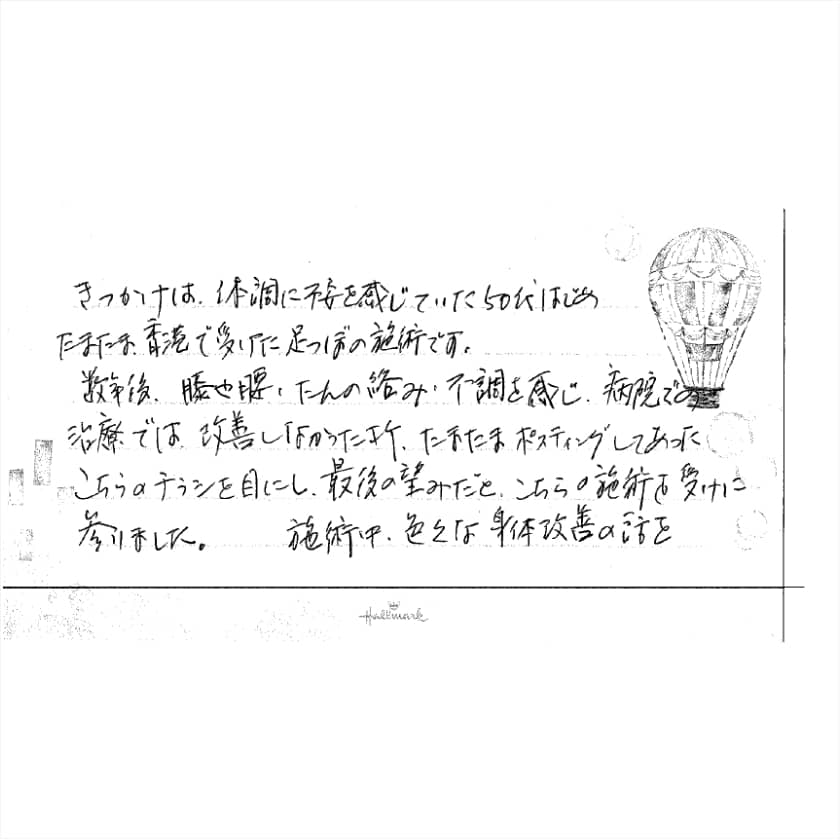 きっかけは、体調に不安を感じていた50代はじめ
たまたま香港で受けた足つぼの施術です。
数年後、膝や腰、たんの絡み・不調を感じ、病院での
治療では、改善しなかった折、たまたまポスティングしてあった
こちらのチラシを目にし、最後の望みだと、こちらの施術を受けに
参りました。 施術中、色々な身体改善の話を
Hallmark